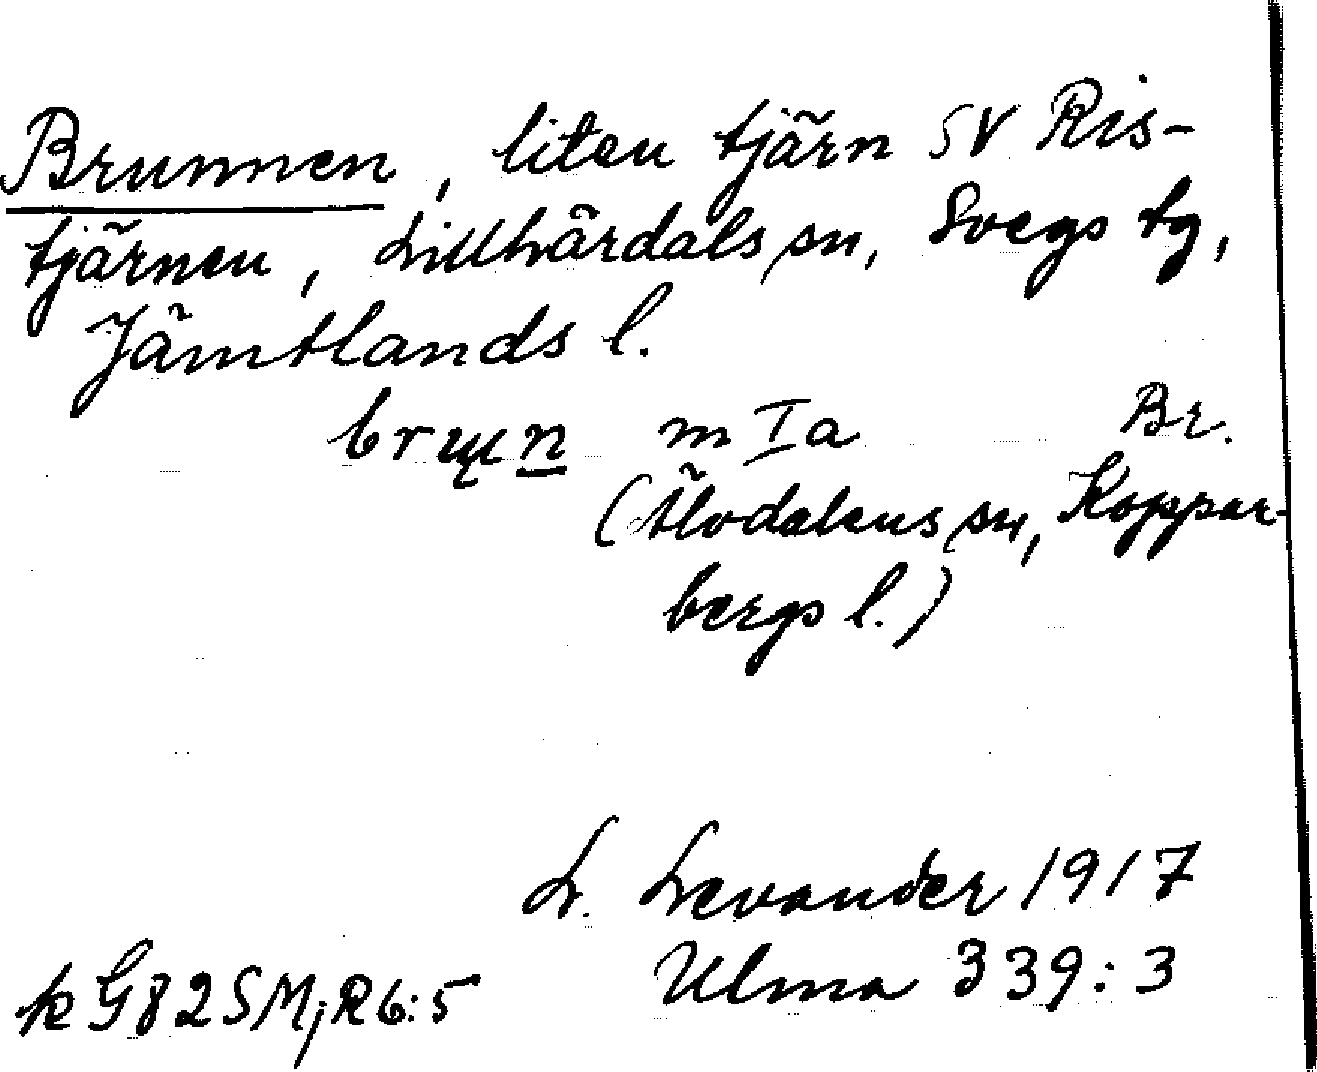 Brunnen, liten tjärn SV Ris-
tjärnen, Lillhärdals sn, Svegs tg,
Jämtlands l.
m I a Br.
(Älvdalens sn, Koppar-
bergs l.)
L. Levander 1917
Ulma 339:3
k G82SM; R6:5